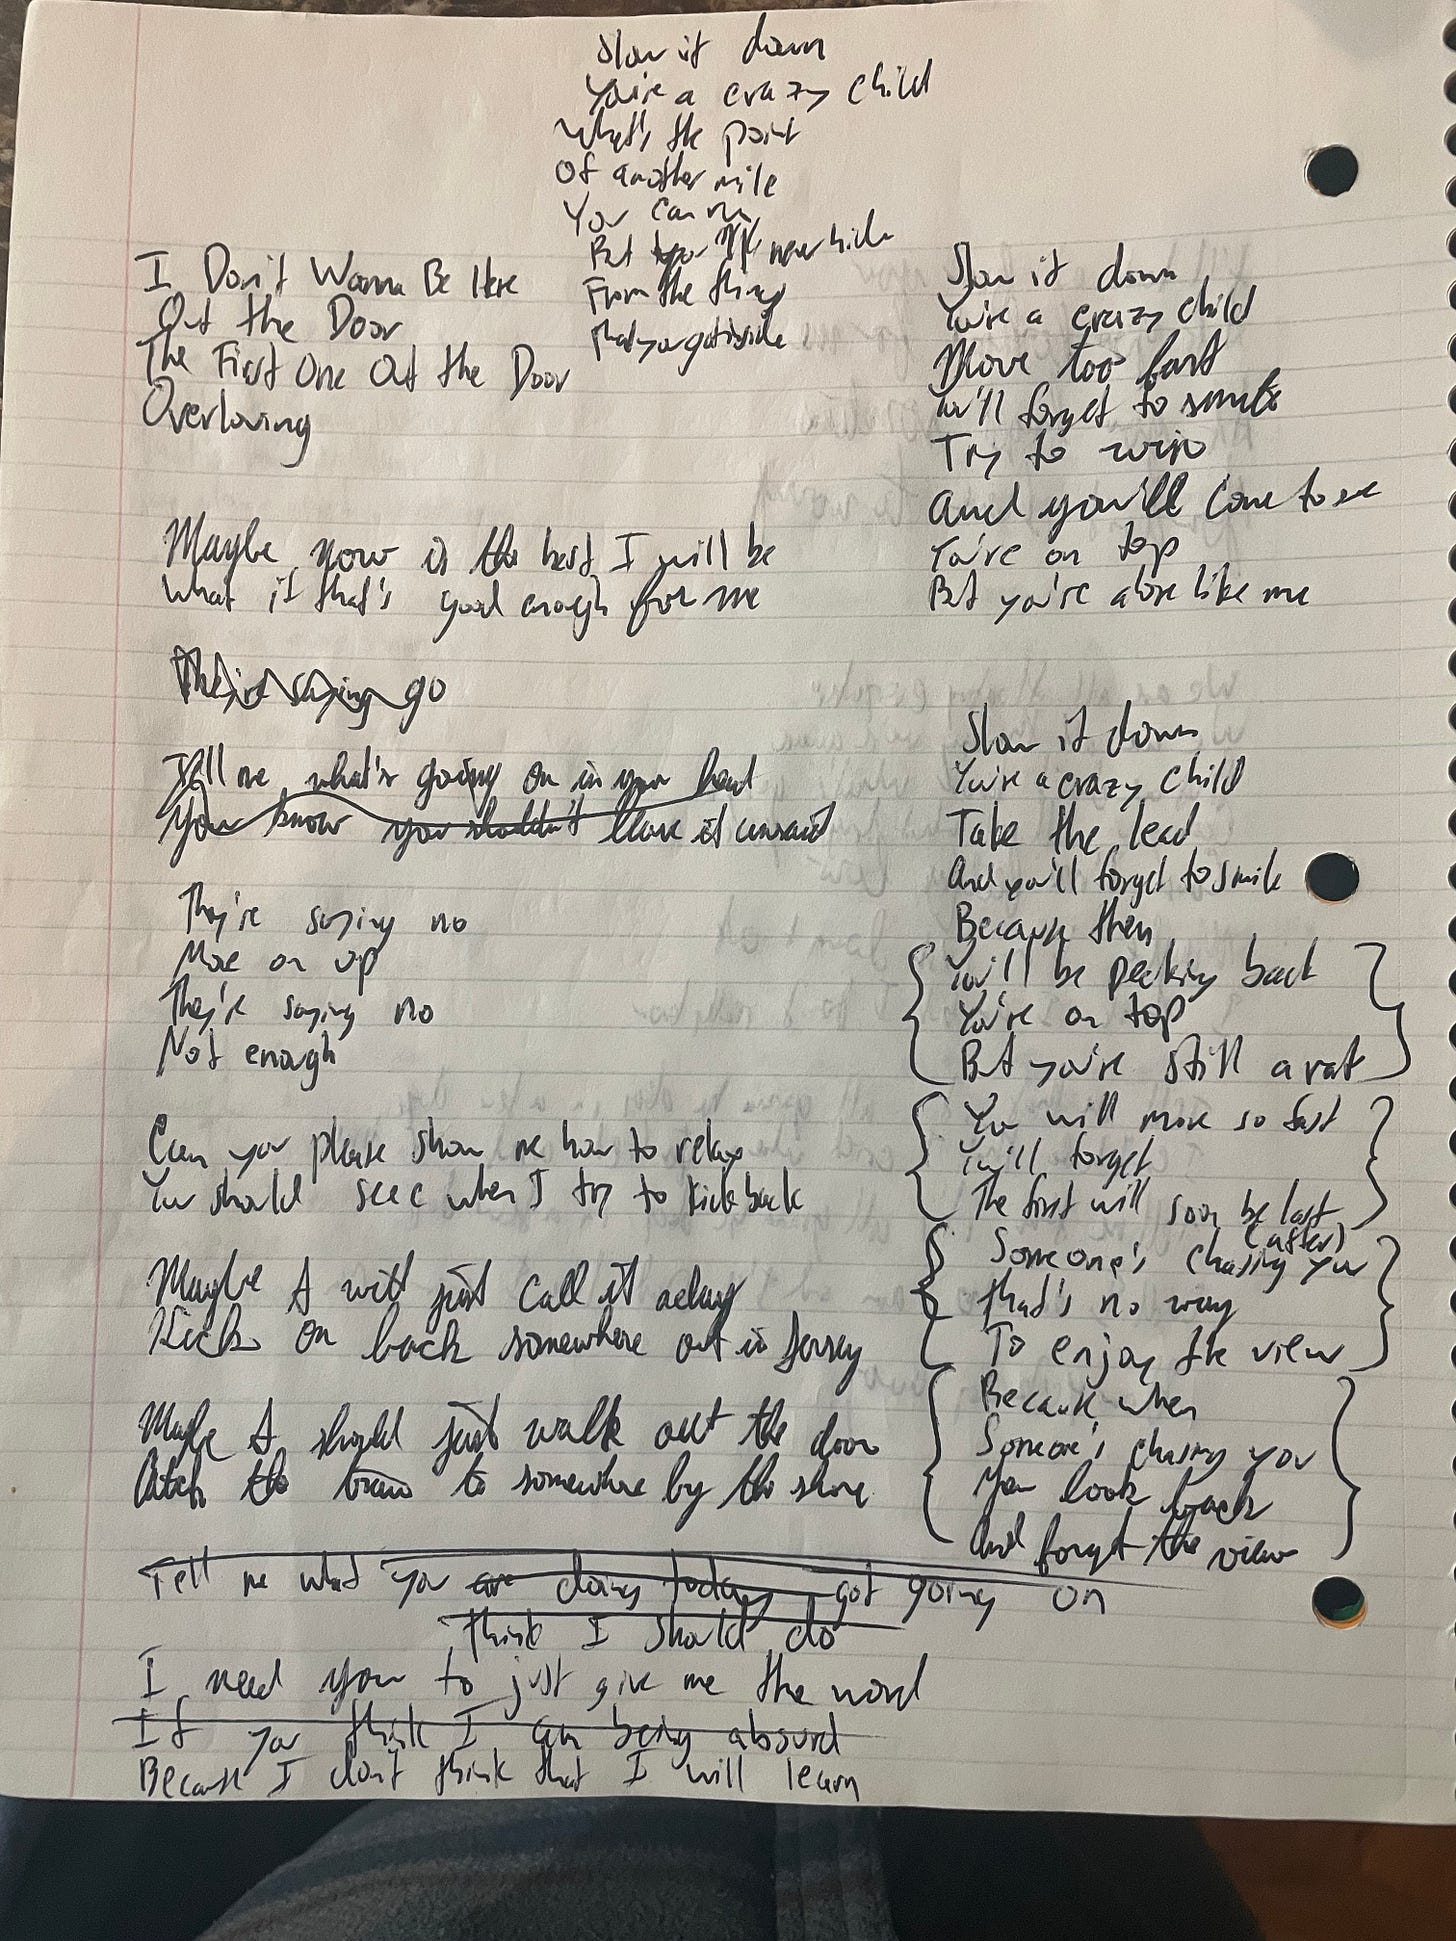 Slow it down
You're a crazy child
What's the point
Of another mile
You can run
But you'll never hide
From the things
That you got inside
I Don't Wanna Be Here
Out the Door
The First One Out the Door
Overloving
Maybe now is the best I will be
What if that's good enough for me
They're saying go
Tell me what's going on in your head
You know you shouldn't leave it unsaid
They're saying no
Move on up
They're saying no
Not enough
Can you please show me how to relax
You should see when I try to kick back
Maybe I will just call it a day
Kick on back somewhere out in Jersey
Maybe I should just walk out the door
Catch the train to somewhere by the shore
Tell me what you are doing today got going on
think I should do
I need you to just give me the word
If you think I am being absurd
Because I don't think that I will learn
Slow it down
You're a crazy child
Move too fast
You'll forget to smile
Try to win
And you'll come to see
You're on top
But you're alone like me
Slow it down
You're a crazy child
Take the lead
And you'll forget to smile
Because then
You'll be peeking back
You're on top
But you're still a rat
You will move so fast
You'll forget
The first will soon be last
(after)
Someone's chasing you
that's no way
To enjoy the view
Because when
Someone's chasing you
You look back
And forget the view